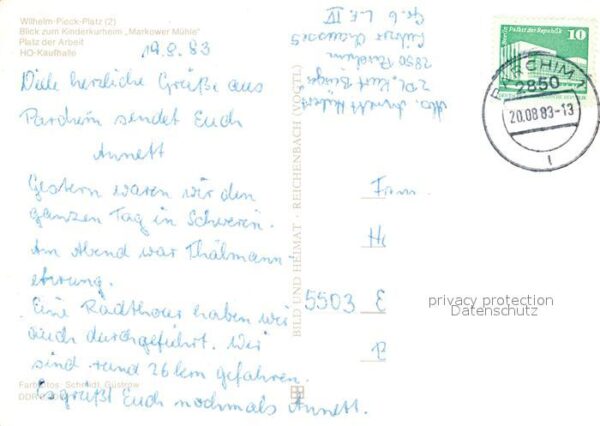 Wilhelm-Pieck-Platz (2)
Blick zum Kinderkurheim „Markower Mühle"
Platz der Arbeit
HO-Kaufhalle
19.8.83
Viele herzliche Grüße aus
Parchim sendet Euch
Annett
Gestern waren wir den
ganzen Tag in Schwerin.
Am Abend war Thälmann-
ehrung.
Eine Radthour haben wir
auch durchgeführt. Wir
sind rund 26 km gefahren.
Es grüßt Euch nochmals Annett.
Farbfotos: Schmidt, Güstrow
DDR
BILD UND HEIMAT · REICHENBACH (VOGTL)
Abs. Annett
2850 Parchim
Palast der Republik
10
PARCHIM 1
2850
20.08.83-13
Fam
Hi
5503 E
privacy protection
Datenschutz